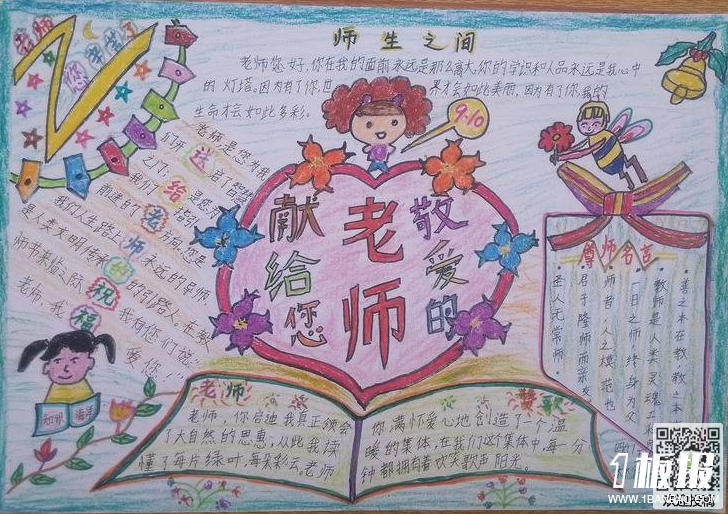 师生之间
老师您好，你在我的面前永远是那么高大，你的学识和人品永远是我心中
的灯塔。因为有了你，世
才会如此美丽，因为有了你，我的
生命才会如此多彩。
老师
您辛苦了
9.10
老师，是您为我
们开送启了智慧
之门，给
我们
前进的了老方向，您是
我们人生路上师永远的导师
是人类文明传承的的引路人。在教
师节来临之际祝我
老师，我福
爱您！
献给您
老师
敬爱的
尊师名言
善之本在教，教之本
教师是人类灵魂工
一日之师，终身为父
师者，人之模范也
君子隆师而亲友
圣人无常师。
知识
海洋
老师
赞歌
老师，你启迪我真正领会
了大自然的恩惠，从此我读
懂了每片绿叶，每朵彩云。老师
你满怀爱心地创造了一个温
暖的集体，在我们这个集体中，每一分
钟都拥有着欢笑歌声阳光。
1板报
WWW.1BANBAO.COM
欢迎投稿